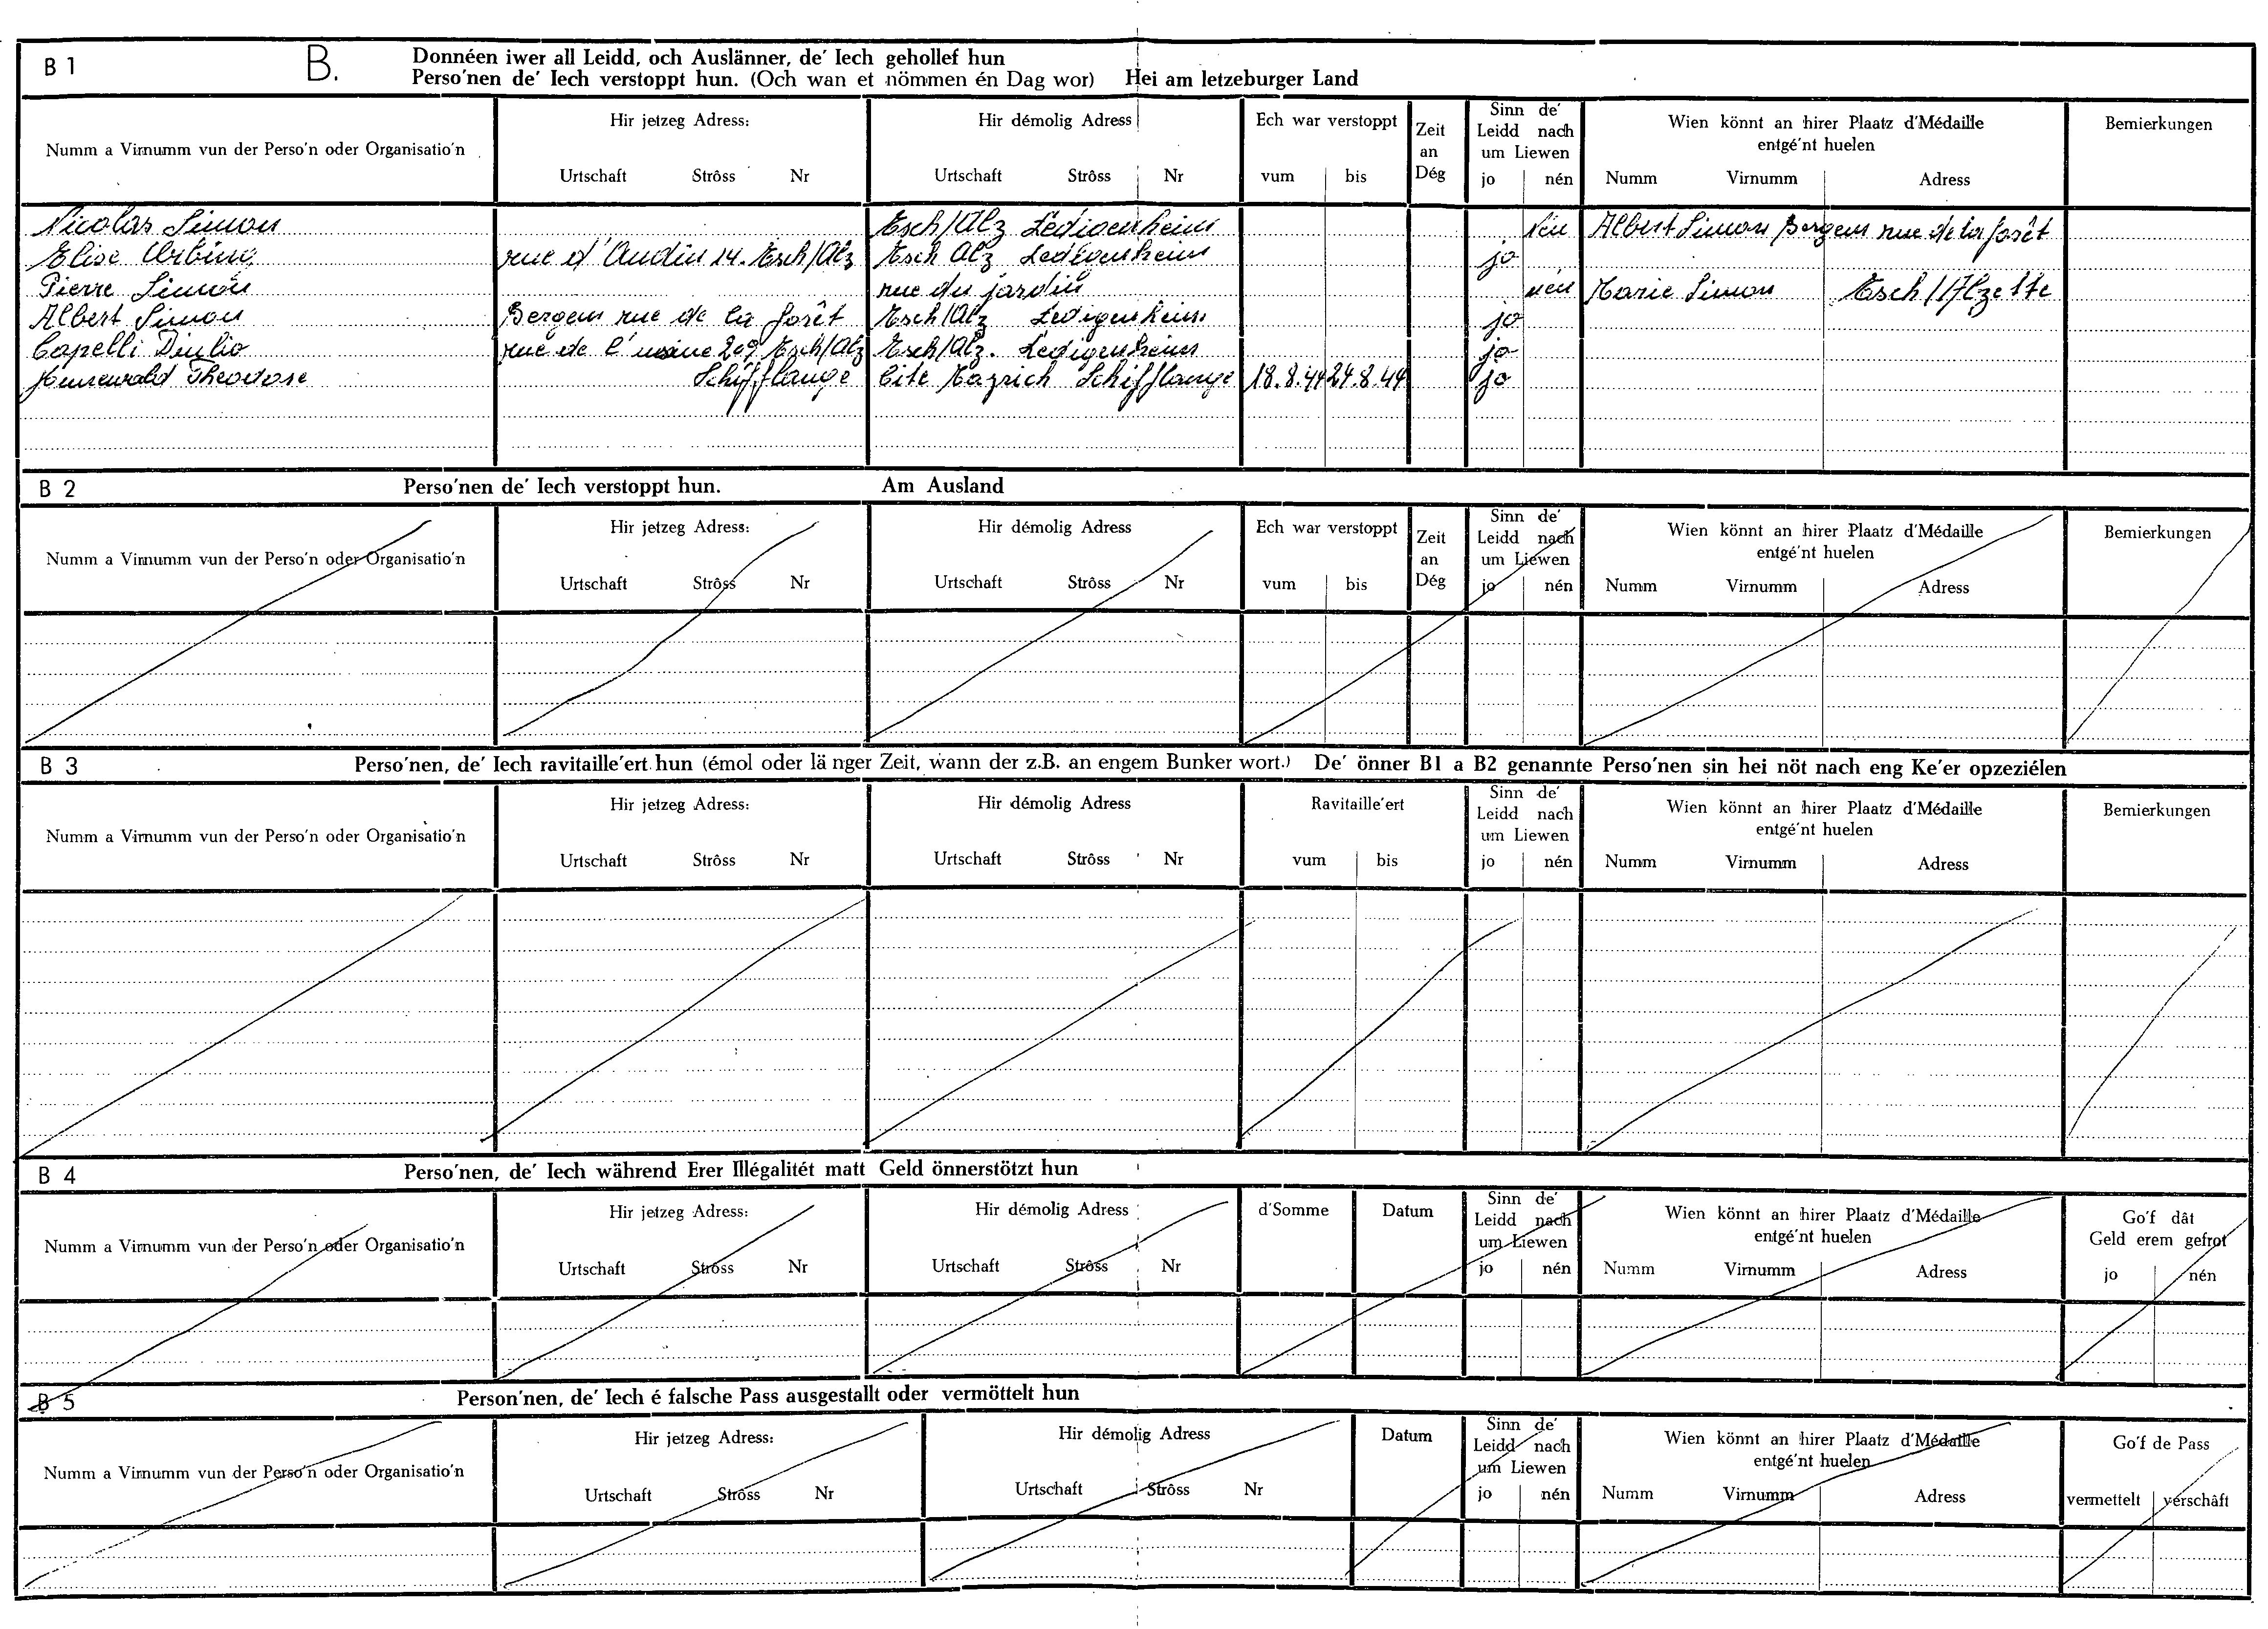 B 1 B. Donnéen iwer all Leidd, och Auslänner, de' Iech gehollef hun
Perso'nen de' Iech verstoppt hun. (Och wan et nömmen én Dag wor) Hei am letzeburger Land
Numm a Virnumm vun der Perso'n oder Organisatio'n
Hir jetzeg Adress:
Urtschaft Strôss Nr
Hir démolig Adress
Urtschaft Strôss Nr
Ech war verstoppt
vum bis
Zeit
an
Dég
Sinn de'
Leidd nach
um Liewen
jo nén
Wien könnt an hirer Plaatz d'Médaille
entgé'nt huelen
Numm Virnumm Adress
Bemierkungen
Nicolas Simon Esch/Alz Ledigenheim nén Albert Simon Bergem rue de la forêt
Elise rue d'Audun 14. Esch/Alz Esch Alz Ledigenheim jo
Pierre Simon rue du jardin nén Marie Simon Esch/Alzette
Albert Simon Bergem rue de la forêt Esch/Alz Ledigenheim jo
Capelli rue de l'usine 209 Esch/Alz Esch/Alz. Ledigenheim jo
Theodore Schifflange Cite Schifflange 18.8.44 24.8.44 jo
B 2 Perso'nen de' Iech verstoppt hun. Am Ausland
Numm a Virnumm vun der Perso'n oder Organisatio'n
Hir jetzeg Adress:
Urtschaft Strôss Nr
Hir démolig Adress
Urtschaft Strôss Nr
Ech war verstoppt
vum bis
Zeit
an
Dég
Sinn de'
Leidd nach
um Liewen
jo nén
Wien könnt an hirer Plaatz d'Médaille
entgé'nt huelen
Numm Virnumm Adress
Bemierkungen
B 3 Perso'nen, de' Iech ravitaille'ert hun (émol oder länger Zeit, wann der z.B. an engem Bunker wort.) De' önner B1 a B2 genannte Perso'nen sin hei nöt nach eng Ke'er opzeziélen
Numm a Virnumm vun der Perso'n oder Organisatio'n
Hir jetzeg Adress:
Urtschaft Strôss Nr
Hir démolig Adress
Urtschaft Strôss Nr
Ravitaille'ert
vum bis
Sinn de'
Leidd nach
um Liewen
jo nén
Wien könnt an hirer Plaatz d'Médaille
entgé'nt huelen
Numm Virnumm Adress
Bemierkungen
B 4 Perso'nen, de' Iech während Erer Illégalitét matt Geld önnerstötzt hun
Numm a Virnumm vun der Perso'n oder Organisatio'n
Hir jetzeg Adress:
Urtschaft Strôss Nr
Hir démolig Adress
Urtschaft Strôss Nr
d'Somme
Datum
Sinn de'
Leidd nach
um Liewen
jo nén
Wien könnt an hirer Plaatz d'Médaille
entgé'nt huelen
Numm Virnumm Adress
Go'f dât
Geld erem gefrot
jo nén
B 5 Person'nen, de' Iech é falsche Pass ausgestallt oder vermöttelt hun
Numm a Virnumm vun der Perso'n oder Organisatio'n
Hir jetzeg Adress:
Urtschaft Strôss Nr
Hir démolig Adress
Urtschaft Strôss Nr
Datum
Sinn de'
Leidd nach
um Liewen
jo nén
Wien könnt an hirer Plaatz d'Médaille
entgé'nt huelen
Numm Virnumm Adress
Go'f de Pass
vermettelt verschâft